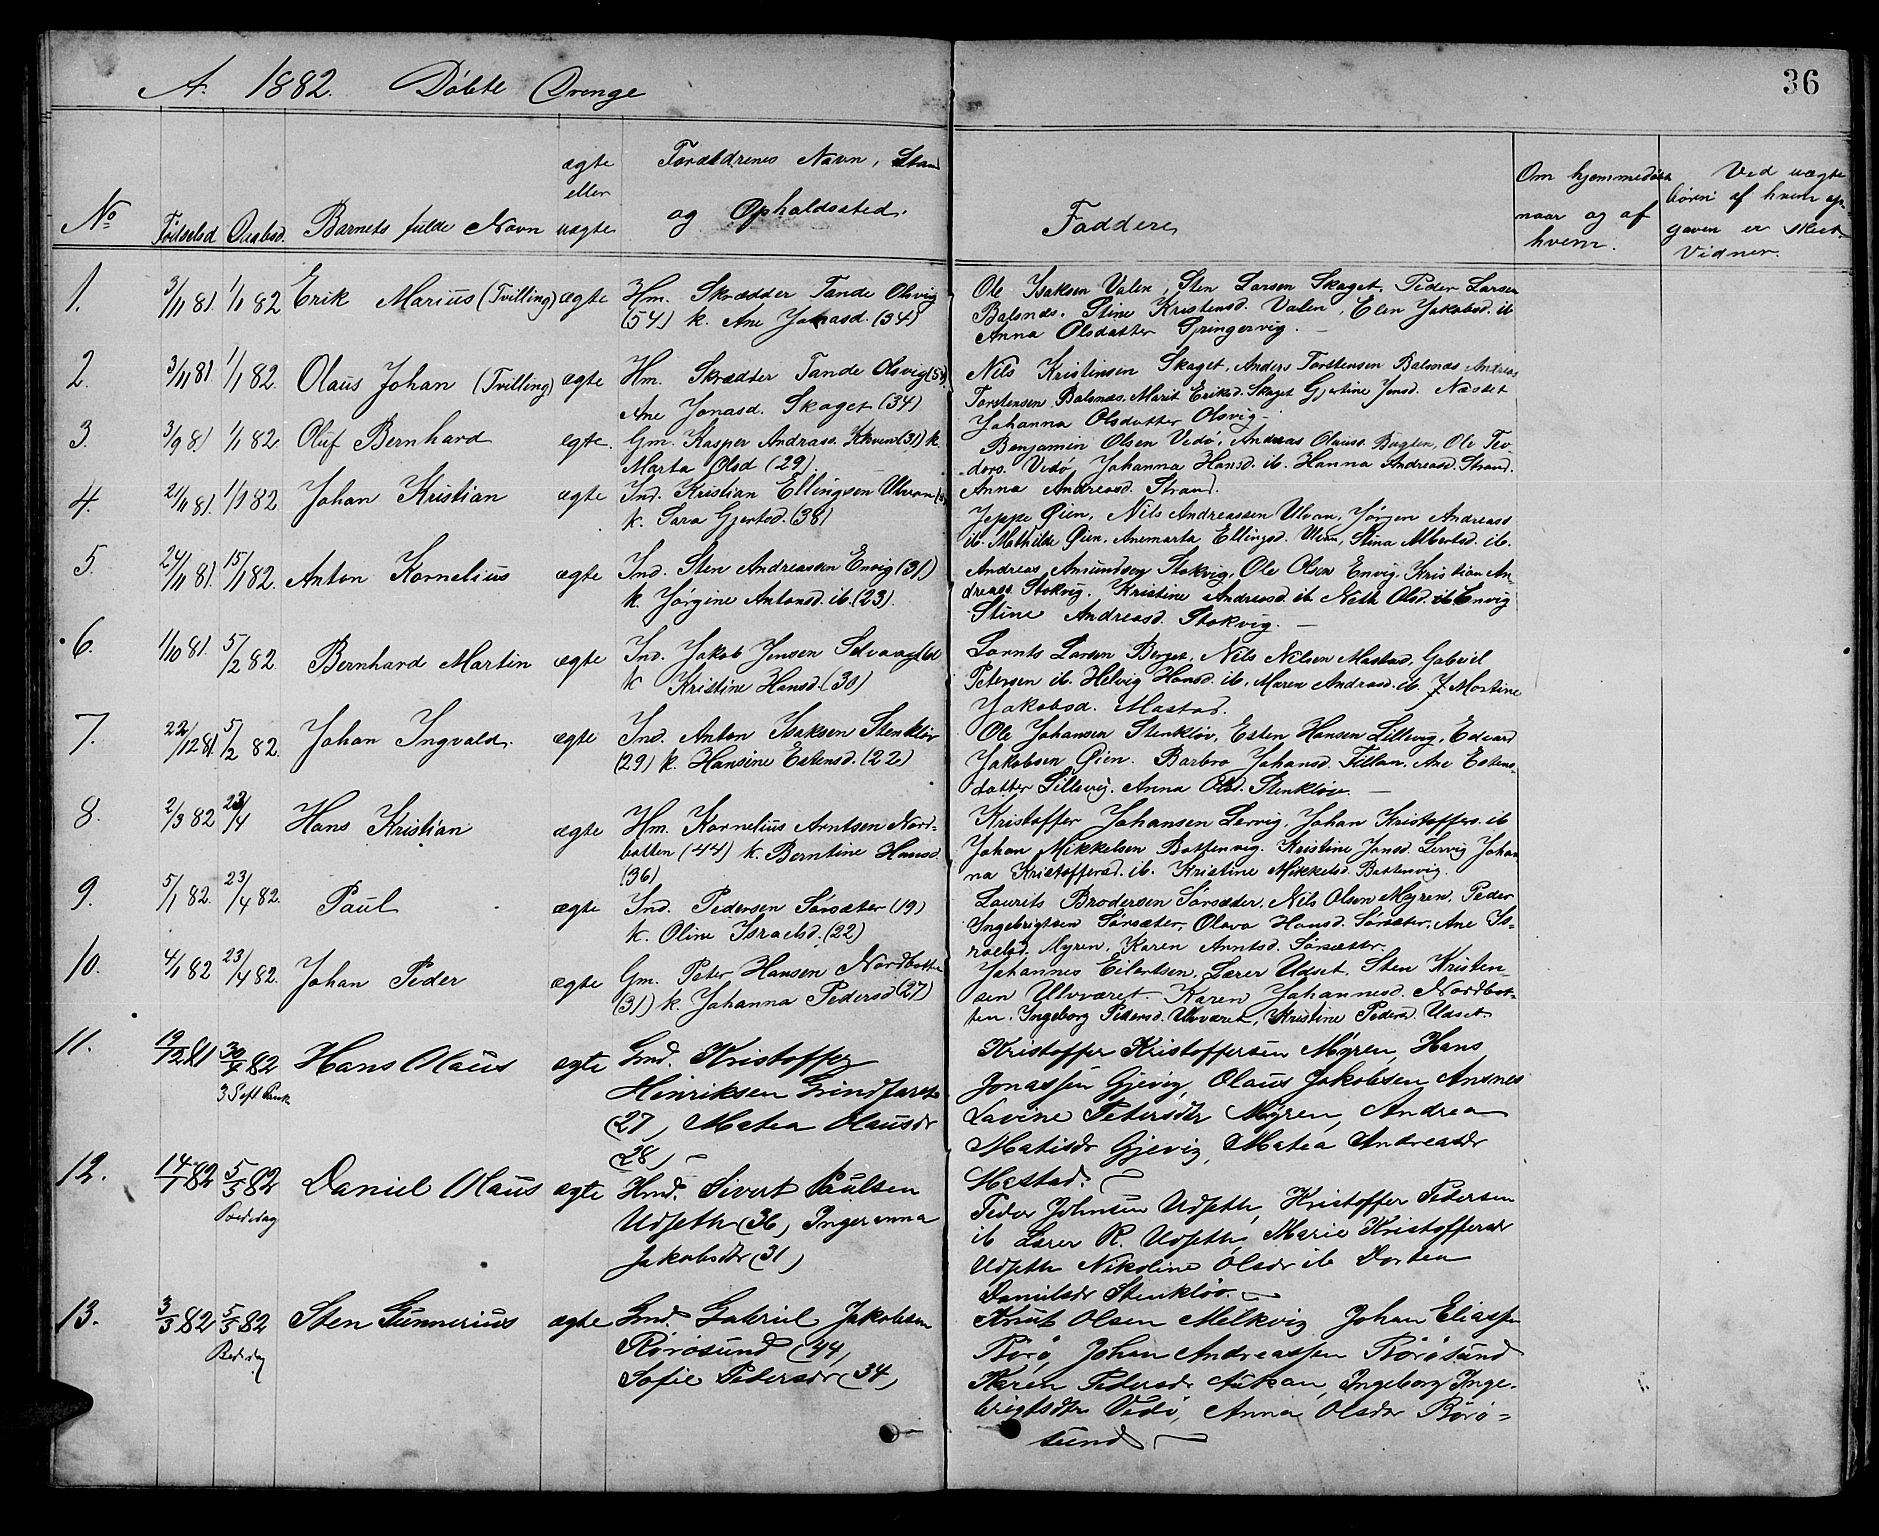 A. 1882. Döbte Drenge
36
No
Födselsd
Daabsd.
Barnets fulde Navn
ægte
eller
uægte
Forældrenes Navn, Stan
og Opholdssted.
Faddere
Om hjemmedöbt
naar og af
hvem.
Ved uægte
börn af hvem op-
gaven er skeet.
Vidner.
1.
3/11 81.
1/1 82
Erik Marius (Tvilling)
ægte
Hm. Skrædder Tande Olsvig
(54) k. Ane Jonasd. (34)
Ole Isaksen Valen, Sten Larsen Skaget. Peder Larsen
Balsnæs. Stine Kristensd. Valen, Elen Jakobsd. ib
Anna Olsdatter Springervig.
2.
3/11 81.
1/1 82.
Olaus Johan (Tvilling)
ægte
Hm. Skrædder Tande Olsvig (54)
Ane Jonasd. Skaget (34)
Nils Kristensen Skaget, Anders Torstensen Balsnæs Andreas
Torstensen Balsnæs. Marit Eriksd. Skaget Gjertine Jensd. Næstet
Johanna Olsdatter Olsvig.
3.
3/9 81
1/1 82
Oluf Bernhard
ægte.
Gm. Kasper Andreass. (31) k
Marta Olsd (29)
Benjamin Olsen Vedö, Andreas Olauss. Ole Teo-
dors. Vedö, Johanna Hansd. ib. Hanna Andreasd. Strand.
Anna Andreasd. Strand.
4.
21/11 81.
1/1 82.
Johan Kristian
ægte
Ind. Kristian Ellingsen Ulvan
k. Sara Gjertsd. (38)
Jeppe Öien, Nils Andreassen Ulvan, Jörgen Andreass
ib. Mathilde Öien. Anemarta Ellingsd. Ulvan, Stina Albertsd. ib.
5.
24/11 81.
15/1 82.
Anton Kornelius
ægte
Ind. Sten Andreassen Envig (31)
k. Jörgine Antonsd. ib. (23).
Andreas Amundsen Stokvig, Ole Olsen Envig. Kristian An-
dreass. Stokvig. Kristine Andreasd. ib Olsd. Envig
Stine Andreasd. Stokvig.
6.
1/10 81.
5/2 82.
Bernhard Martin
ægte
Ind. Jakob Jensen
k Kristine Hansd. (30)
Lornts Larsen Berget, Nils Nilsen Mastad, Gabriel
Petersen ib. Helvig Hansd. ib. Maren Andreasd. ib. Martine
Jakobsd. Mastad.
7.
22/12 81.
5/2 82.
Johan Ingvald.
ægte
Ind. Anton Isaksen Stenklöv
(29) k. Hansine Estensd. (22)
Ole Johansen Stenklöv, Esten Hansen Lillevig, Edvard
Jakobsen Öien. Barbro Johansd. Fillan. Ane Estens-
datter Lillevig. Anna Olsd. Stenklöv.
8.
2/3 82
23/4
Hans Kristian
ægte
Hm. Kornelius Arntsen Nord-
botten (44) k. Berntine Hansd.
(36)
Kristoffer Johansen Lervig, Johan Kristoffers. ib
Johan Mikkelsen Bottenvig. Kristine Jonsd. Lervig Johan
na Kristoffersd. ib. Kristine Mikkelsd. Bottenvig.
9.
5/1 82.
23/4 82.
Paul
ægte
Ind. Pedersen Sörsæter (19)
k. Oline Israelsd. (22)
Laurits Brodersen Sörsæter, Nils Olsen Myren, Peder
Ingebrigtsen Sörsæter, Olava Hansd. Sörsæter, Ane Is-
raelsd. Myren. Karen Arntsd. Sörsæter.
10.
4/1 82
23/4 82.
Johan Peder
ægte
Gm. Peter Hansen Nordbotten
(31) k. Johanna Pedersd (27)
Johannes Eilertsen, Lærer Udset. Sten Kristen-
sen Ulvväret. Karen Johannesd. Nordbot-
ten. Ingeborg Pedersd. Ulvväret, Kristine Pedersd. Udset.
11.
19/12 81
30/4 82
3 S eft Paask
Hans Olaus
ægte
Gmd. Kristoffer
Henriksen
(27, Matea Olausdr
(28,
Kristoffer Kristoffersen Myren, Hans
Jonassen Gjevig, Olaus Jakobsen Ansnes
Lavine Petersdtr Myren, Andrea
Matisdr Gjevig, Matea Andreasdr
Mastad.
12.
14/1 82
5/5 82
Bededag
Daniel Olaus
ægte
Hmd. Sivert Paulsen
Udseth (36, Ingeranna
Jakobsdtr (31)
Peder Johnsen Udseth, Kristoffer Pedersen
ib Lærer R. Udseth, Marie Kristoffersdr
Udseth Nikoline Olsdr ib Dortea
Danielsdr Stenklöv.
13.
3/3 82
5/5 82
Bededag
Sten Gunnerius
ægte
Gmd. Gabriel Jakobsen
Rörösund (44,
Sofie Pedersdr (34,
Knut Olsen Melkvig Johan Eliassen
Rörö, Johan Andreassen Rörösund
Karen Pedersdr Aukan, Ingeborg Inge-
brigtsdtr Vedö, Anna Olsdr Rörö-
sund